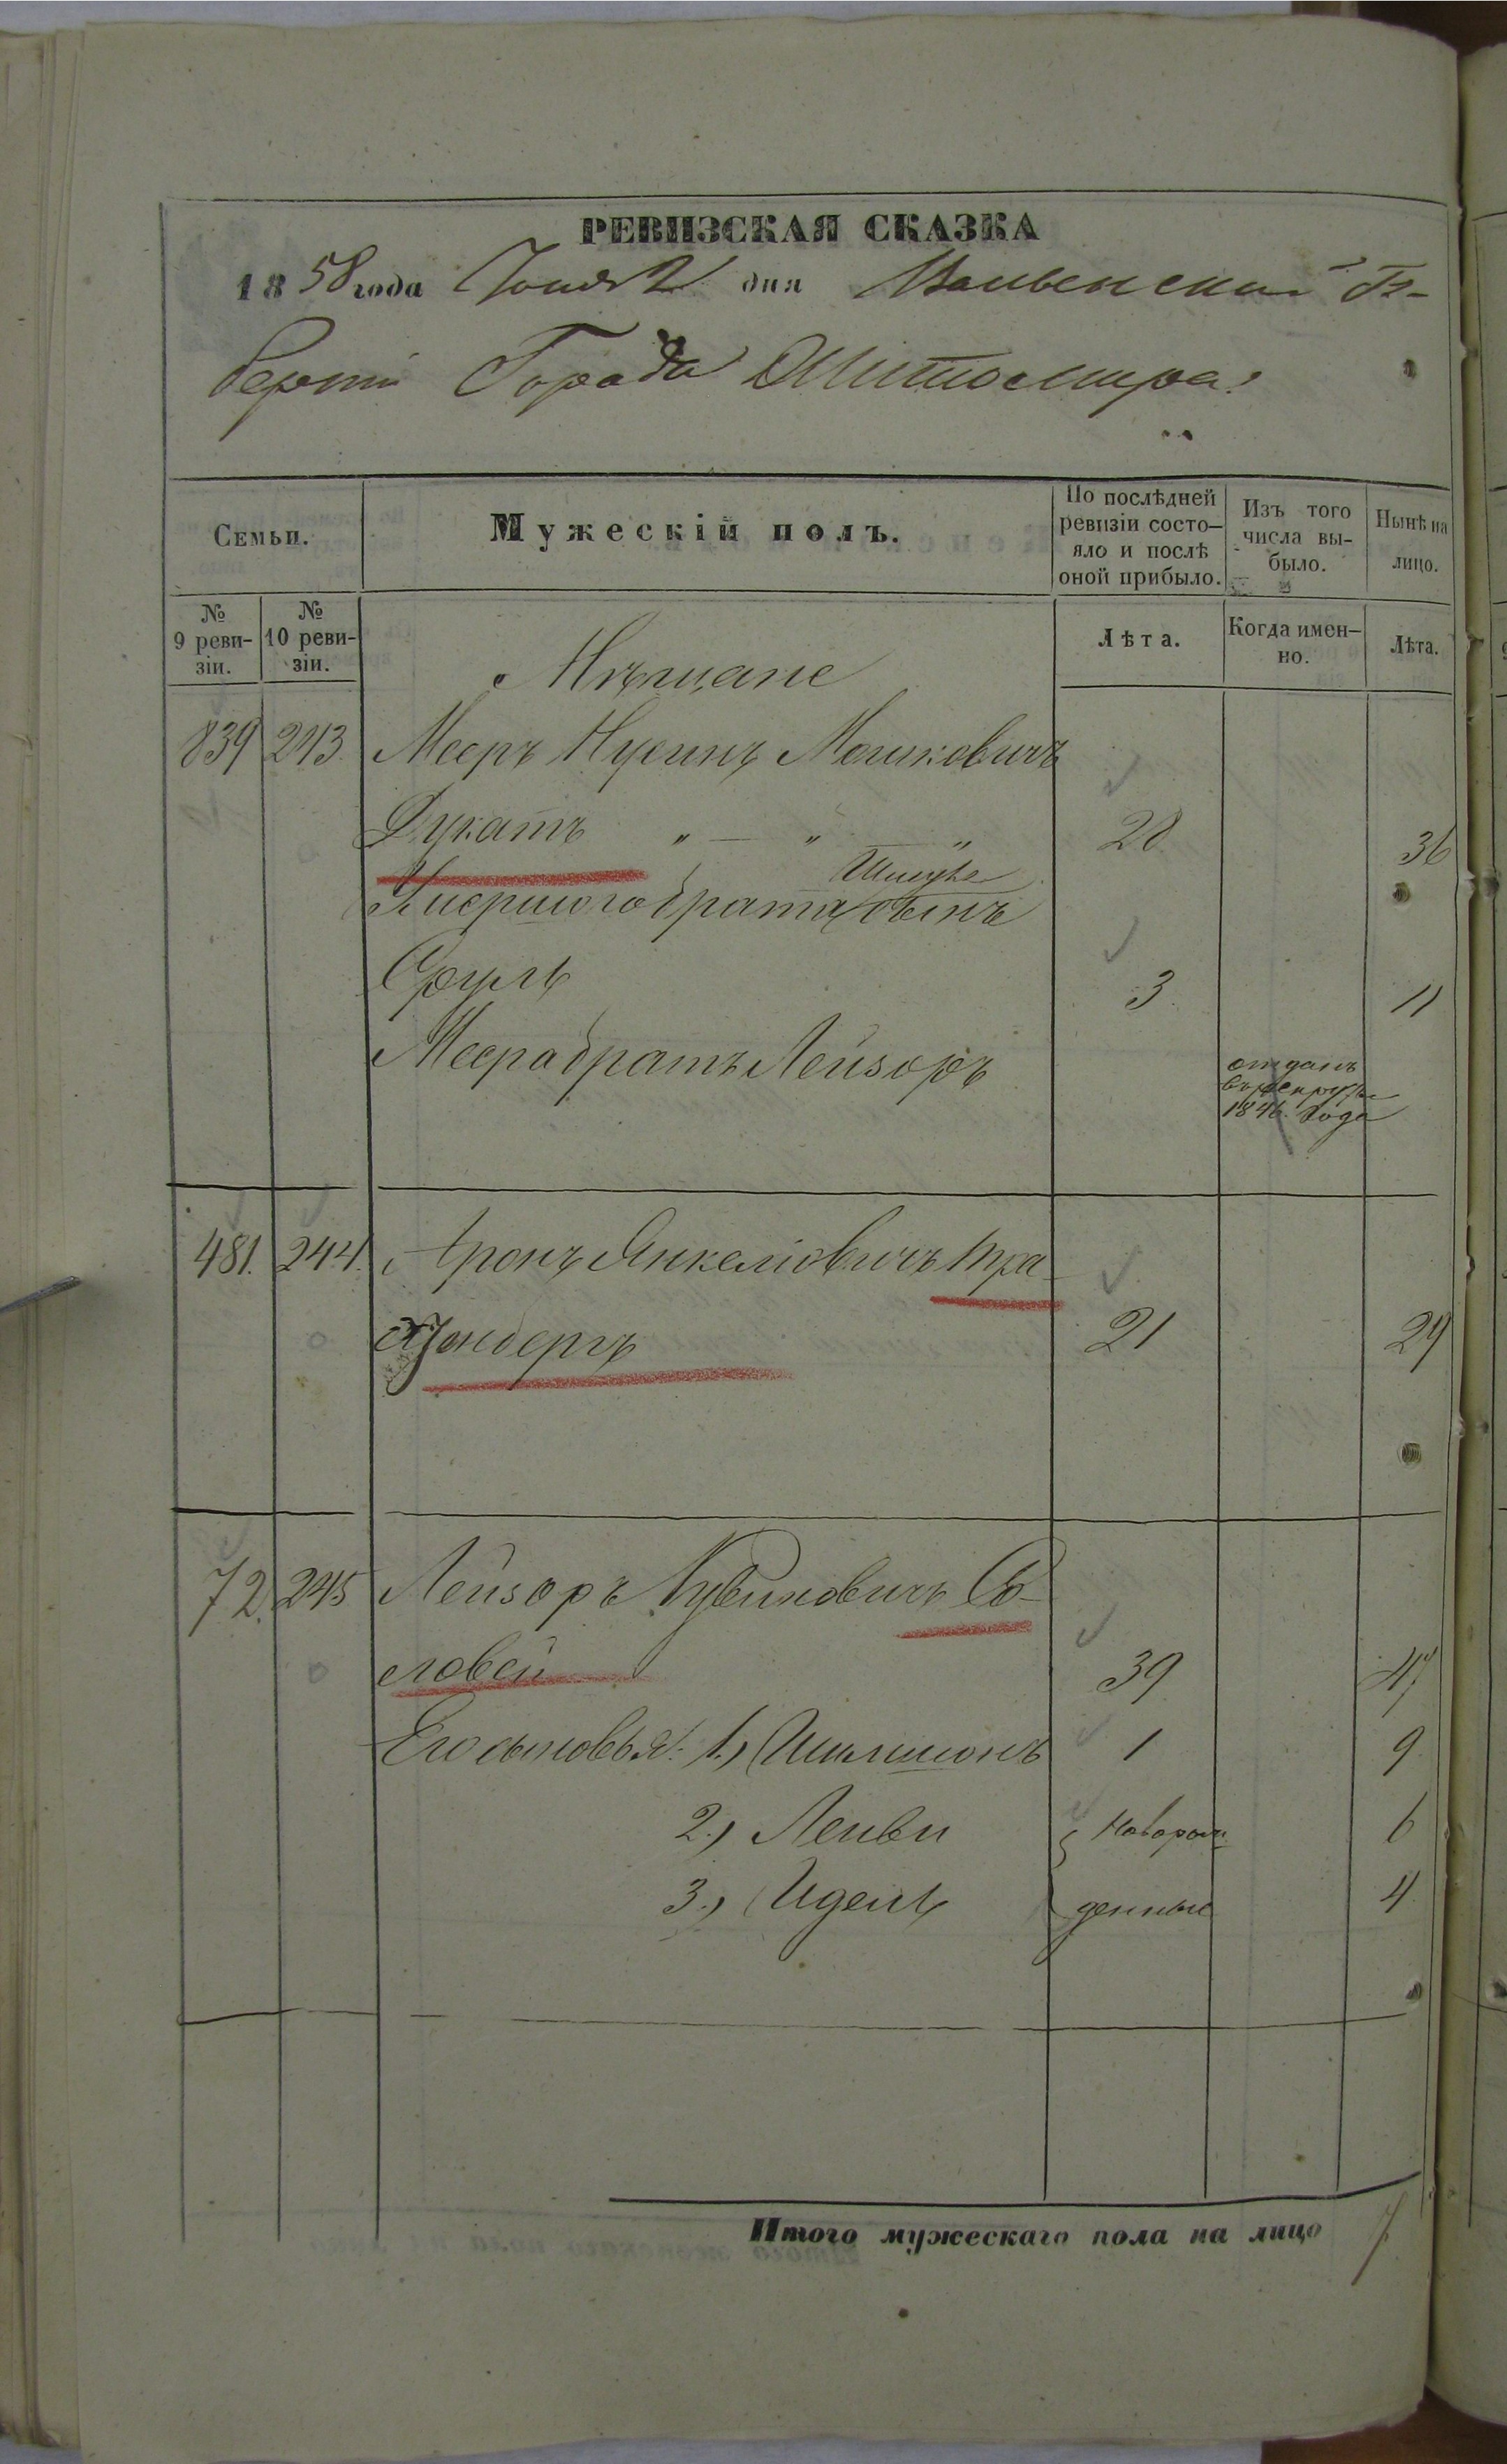 РЕВИЗСКАЯ СКАЗКА
1858 года Іюня 2 дня Волынской Гу-
берніи Города Житомира:
Семьи.
Мужескій полъ.
По послѣдней ревизіи состо-
яло и послѣ оной прибыло.
Изъ того числа вы-
было.
Нынѣ на лицо.
№ 9 реви-
зіи.
№ 10 реви-
зіи.
Лѣта.
Когда имен-
но.
Лѣта.
Мѣщане
839 243 Мееръ Нусинъ Мошковичъ
Дукатъ „ — „ — „ 28 36
Шмуля
брата сынъ
Сруль 3 11
Меера братъ Лейзоръ
отданъ
въ рекруты
1846. года
481. 244. Аронъ Янкеліовичъ Тра-
бергъ 21 29
72. 245 Лейзоръ Со-
ловей 39 47
Его сыновья: 1.) Шимшонъ 1 9
2.) Лейви Საворож 6
3.) Идель денные 4
Итого мужескаго пола на лицо 7